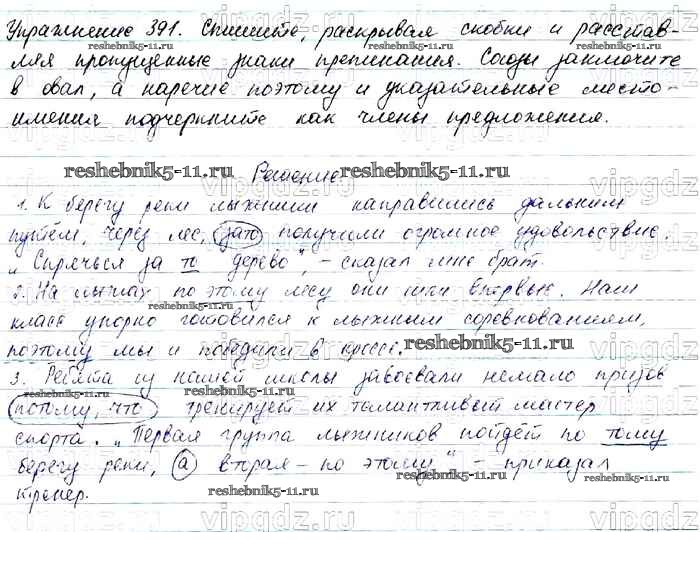 Упражнение 391. Спишите, раскрывая скобки и расстав-
ляя пропущенные знаки препинания. Союзы заключите
в овал, а наречие поэтому и указательные место-
имения подчеркните как члены предложения.
reshebnik5-11.ru
Решение
1. К берегу реки лыжники направились дальним
путём, через лес, зато получили огромное удовольствие.
„Спрячься за то дерево", - сказал мне брат.
2. На лыжах по этому лесу они шли впервые. Наш
класс упорно готовился к лыжным соревнованиям,
поэтому мы и победили в кроссе.
3. Ребята из нашей школы завоевали немало призов
потому, что тренирует их талантливый мастер
спорта. „Первая группа лыжников пойдёт по тому
берегу реки, а вторая - по этому" - приказал
тренер.